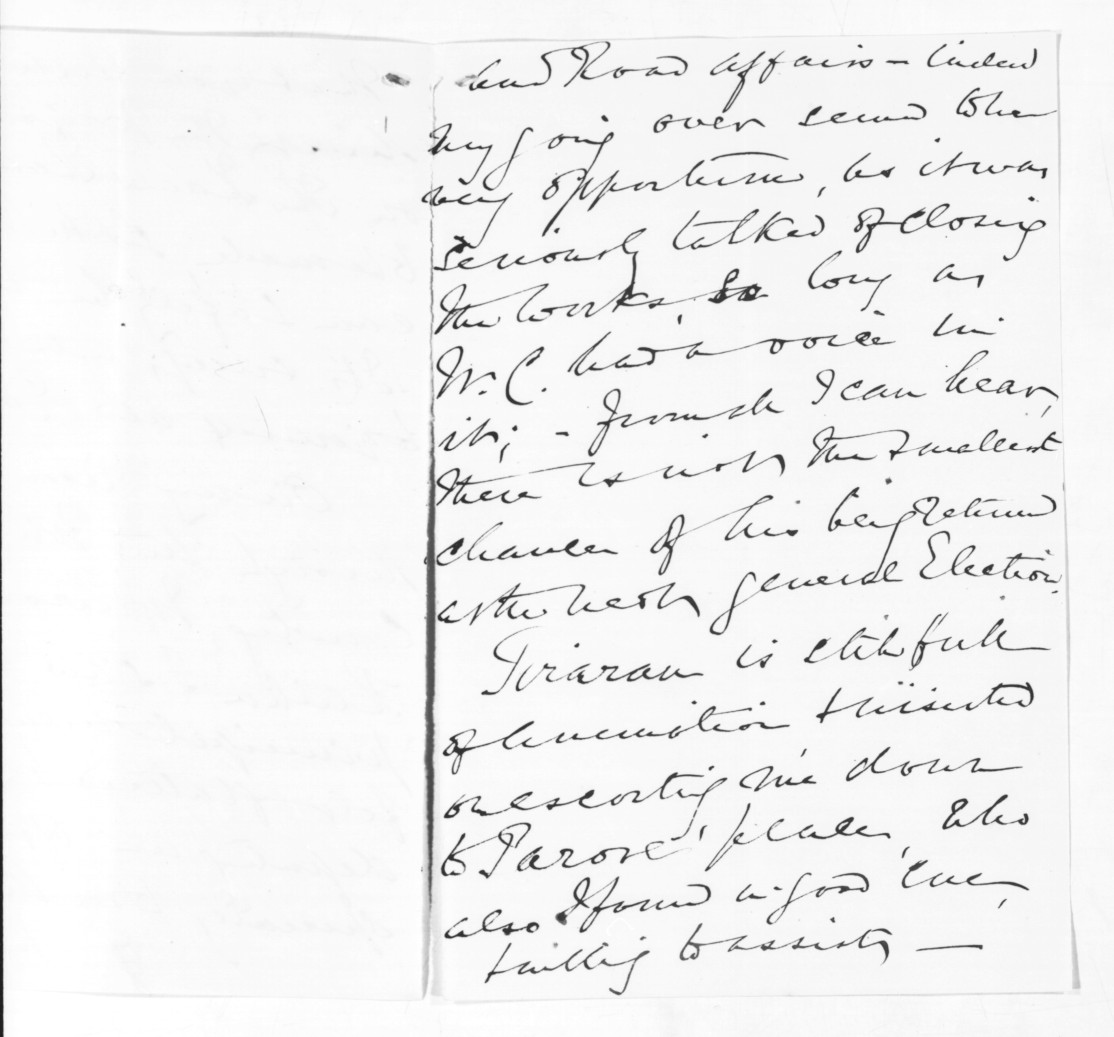 and Road affairs – indeed
my going over seemed to be
very opportune, as it was
seriously talked of closing
the works, so long as
W. C. had a voice in
it; – from all I can hear,
there is not the smallest
chance of his being returned
at the next general Election.
is still full
of & insisted
on escorting me down
to place, who
also I found in good
& willing to assist –